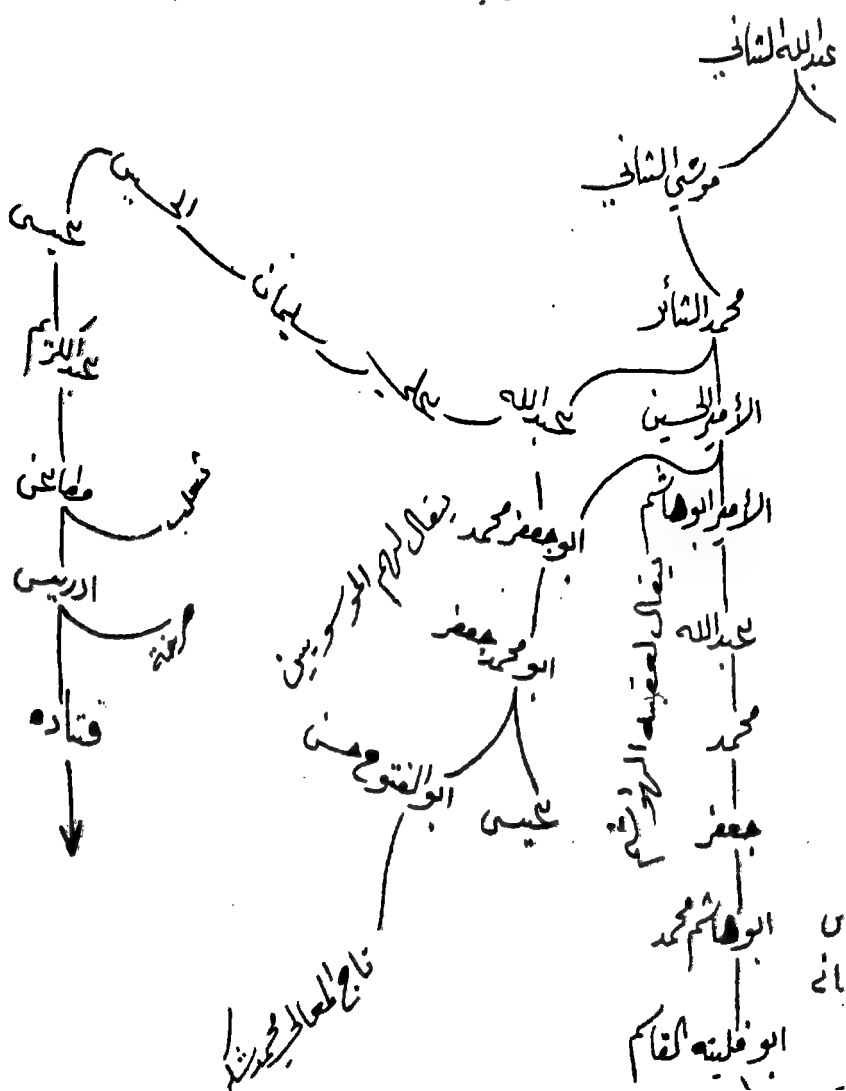 عبدالله الثاني
موسى الثاني
محمد الثائر
الأمير الحسين
الأمير ابوهاشم
يقال لعقبه الهواشم
عبدالله
محمد
جعفر
ابوهاشم محمد
ابو فليته القاسم
عبدالله
ابوجعفر محمد
يقال لهم الموسويين
ابو محمد جعفر
عيسى
ابوالفتوح حسن
تاج المعالي محمد شكر
علي
سليمان
الحسين
عيسى
عبدالكريم
مطاعن
ثعلب
ادريس
صرخة
قتاده